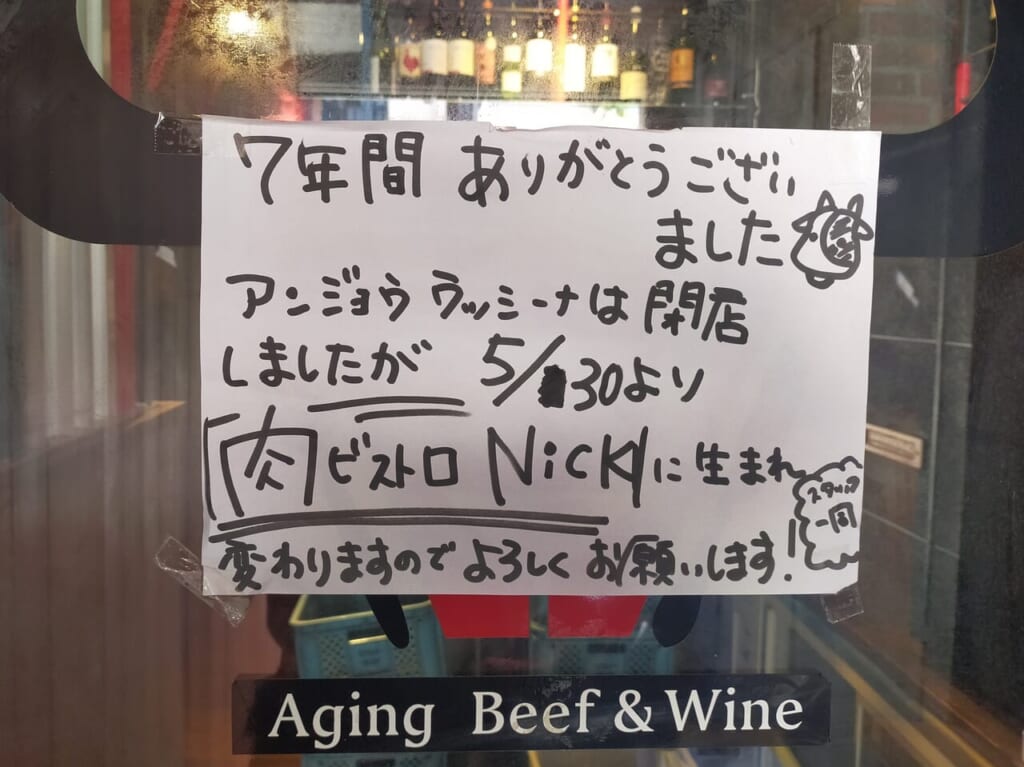 7年間 ありがとうござい
ました
アンジョウ ラッシーナは閉店
しましたが 5/30より
「肉ビストロ Nick」に生まれ
変わりますのでよろしくお願いします!
スタッフ
一同
Aging Beef & Wine